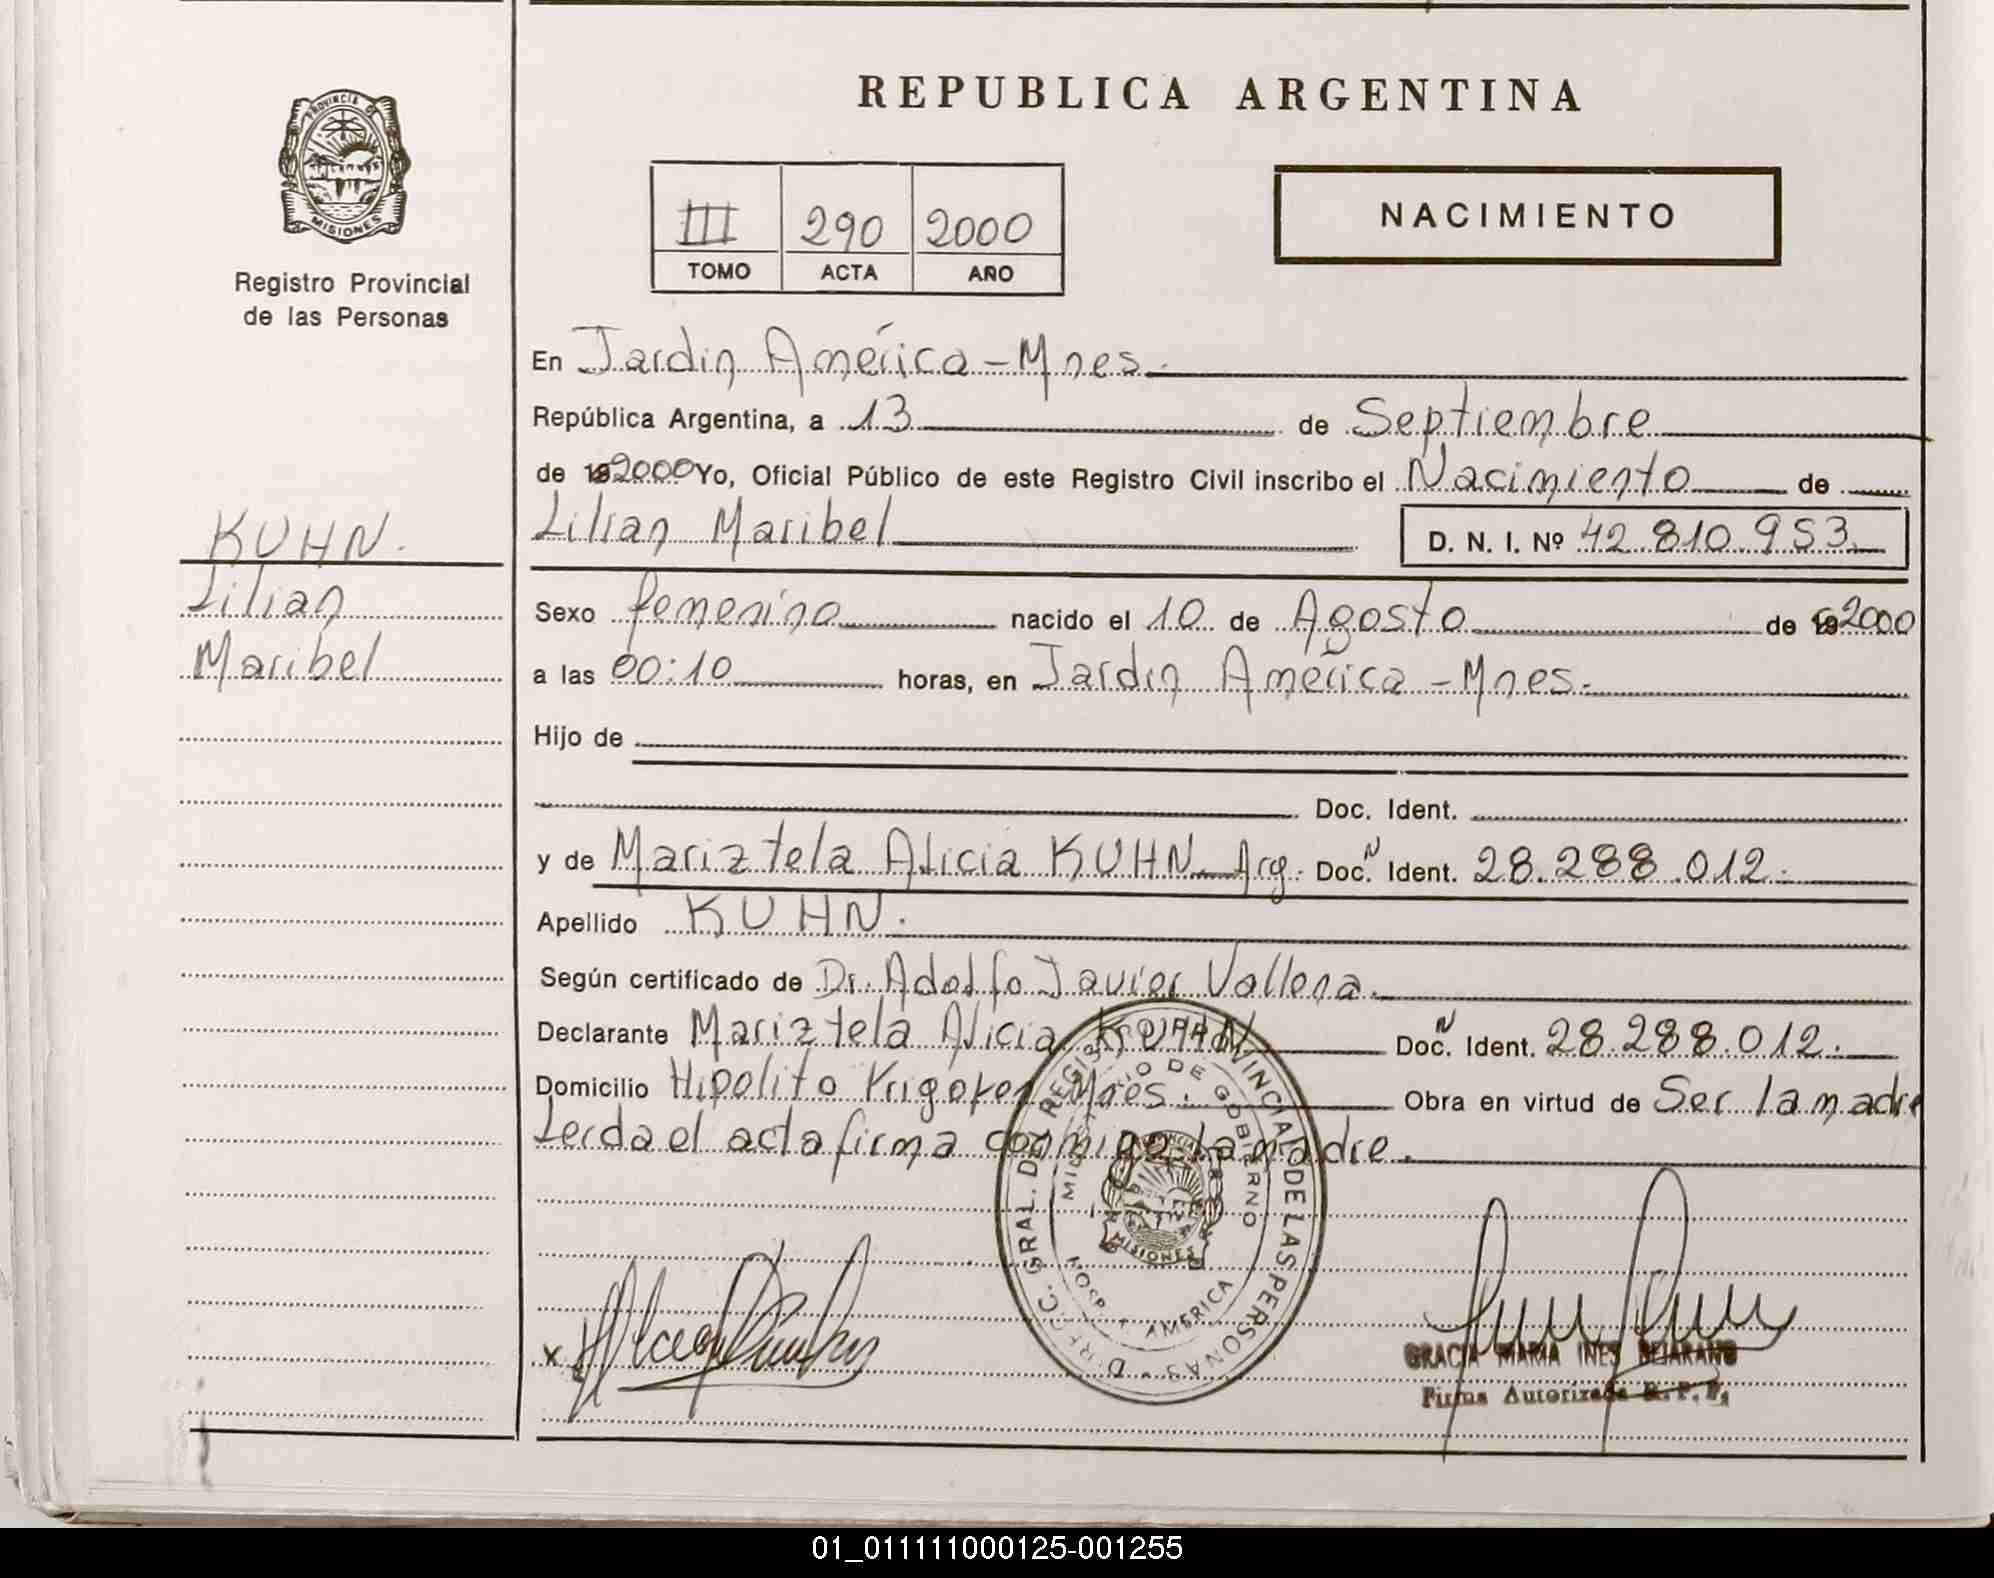 REPUBLICA ARGENTINA
PROVINCIA DE
MISIONES
Registro Provincial
de las Personas
III 290 2000
TOMO ACTA AÑO
NACIMIENTO
En Jardin América - Mnes.
República Argentina, a 13 de Septiembre
de 19 2000 Yo, Oficial Público de este Registro Civil inscribo el Nacimiento de
Lilian Maribel D. N. I. Nº 42.810.953.
KUHN.
Lilian
Maribel
Sexo femenino nacido el 10 de Agosto de 19 2000
a las 00:10 horas, en Jardin América - Mnes.
Hijo de
Doc. Ident.
y de Mariztela Alicia KUHN Arg. Doc. N Ident. 28.288.012.
Apellido KUHN.
Según certificado de Dr. Adolfo Javier Vallena.
Declarante Mariztela Alicia KUHN Doc. N Ident. 28.288.012.
Domicilio Hipolito Yrigoyen Mnes. Obra en virtud de Ser la madre
Leida el acta firma conmigo La madre.
DIREC. GRAL. DEL REGISTRO PROVINCIAL DE LAS PERSONAS
MINISTERIO DE GOBIERNO
MISIONES
HOSP. AMERICA
x
GRACIA MARIA INES BEJARANO
Firma Autorizada R. P. P.
01_011111000125-001255